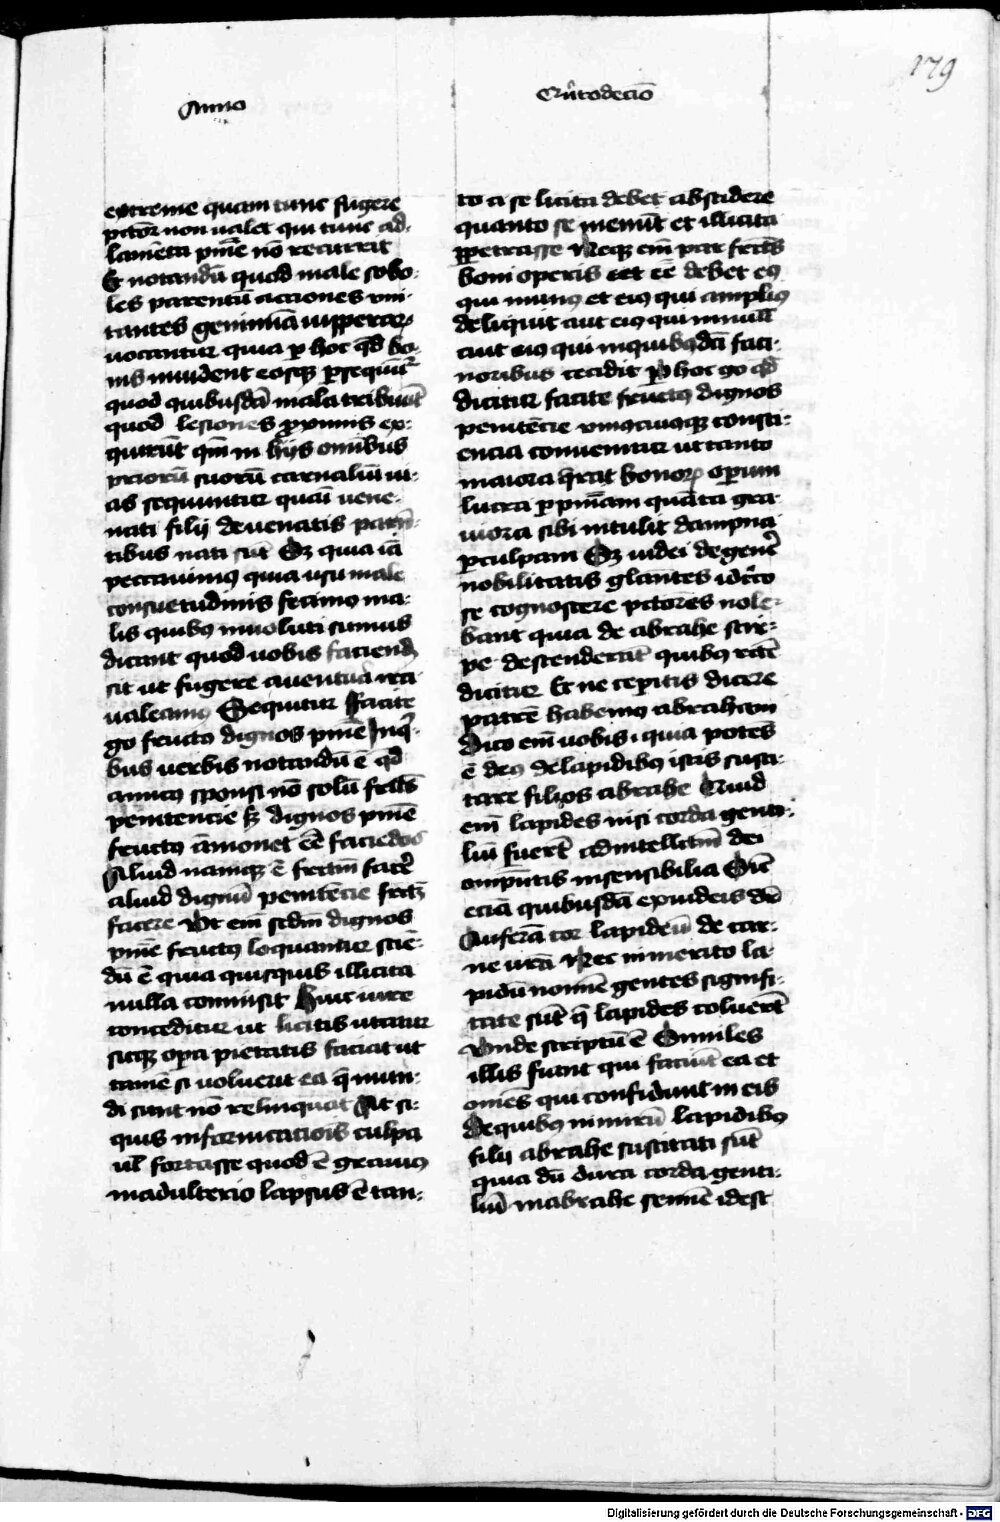 179
Anno
Qui͂todecio͂
extreme quam tunc fugere
pcto͂r non ualet qui tunc ad
lame͂ta pnīe nō recurrit
Et notandū quod male sobo-
les parentū acciones ymi-
tantes genimīa uipperarꝝ
uocantur quia ꝑ hoc qđ bo-
nis inuident eosqꝫ ꝑsequūtr
quod quibusdā mala tribuūt
quod lesiones ꝓximis ex-
quirūt qm̄ in hijs omībus
priorū suorū carnaliū ui-
as sequuntur quasi uene-
nati filij de uenatis parn̄-
tibus nati sūt Sꝫ quia iā
peccauimꝰ quia usu male
consuetudinis
lis quibꝰ inuoluti sumus
dicant quod uobis faciend
sit ut fugere a uentura ira
ualeamꝰ Sequitur Facite
go fructꝰ dignos pnīe Inq̄-
bus uerbis notandū ē qđ
amicꝰ sponsi nō solū frc̄tꝰ
penitencie sꝫ dignos pnīe
fructꝰ āmonet eē faciēdos
Aliud namqꝫ ē frc̄tm̄ facer̄
aliud dignū penitēcie frc̄tꝫ
facere Vt em̄ sc̄dm dignos
pnīe fructꝰ loquantur sciē-
dū ē quia quisquis illicita
nulla commisit Huic iure
conceditur ut licitis utatur
sicqꝫ oꝑa pietatis faciat ut
tamē si uoluerit ea q̄ mun-
di sunt nō relinquat At si-
quis in fornicacionīs culpa
ul̄ fortasse quod ē grauiꝰ
in adulterio lapsus ē tan-
to a se licita debet abscidere
quanto se meminīt et illicita
ꝑpetrasse Neqꝫ em̄ par frc̄tꝰ
boni operis eēē debet eꝰ
qui minꝰ et eiꝰ qui ampliꝰ
deliquit aut eiꝰ qui in null̄
aut eiꝰ qui in quibꝰdā faci-
noribus cecidit ꝑ hoc go qđ
dicitur facite fructꝰ dignos
penitēcie vniuscuiusqꝫ consci-
encia conuenitur ut tanto
maiora q̄rat bonorꝝ oꝑum
lucra ꝑ pnīam quāta gra-
uiora sibi intulit dampna
ꝑ culpam Sꝫ iudei de gen̄e
nobilitatis glāntes idc̄rco
se cognoscere pctōres nole-
bant quia de abrahe stir-
pe descenderāt quibꝰ rc̄tē
dicitur Et ne ceperitis dicere
patrē habemꝰ abraham
Dico em̄ uobis quia potēs
ē deꝰ de lapidibꝰ istis susci-
tare filios abrahe Quid
em̄ lapides nisi corda genti-
liū fuerūt ad intellectum dei
omnipōtentis insensibilia Sicut
eciā quibusdā ex iudeis dr̄
Auferā cor lapideū de car-
ne urā Nec inmerito la-
pidū nomīe gentes signifi-
cate sūt q̄ lapides coluerūt
Vnde scriptū ē Similes
illis fiant qui faciūt ea et
omēs qui confidunt in eis
De quibus nimirū lapidibꝰ
filij abrahe suscitati sūt
quia dū dura corda genti-
liū in abrahe semīe id est
Digitalisierung gefördert durch die Deutsche Forschungsgemeinschaft - DFG